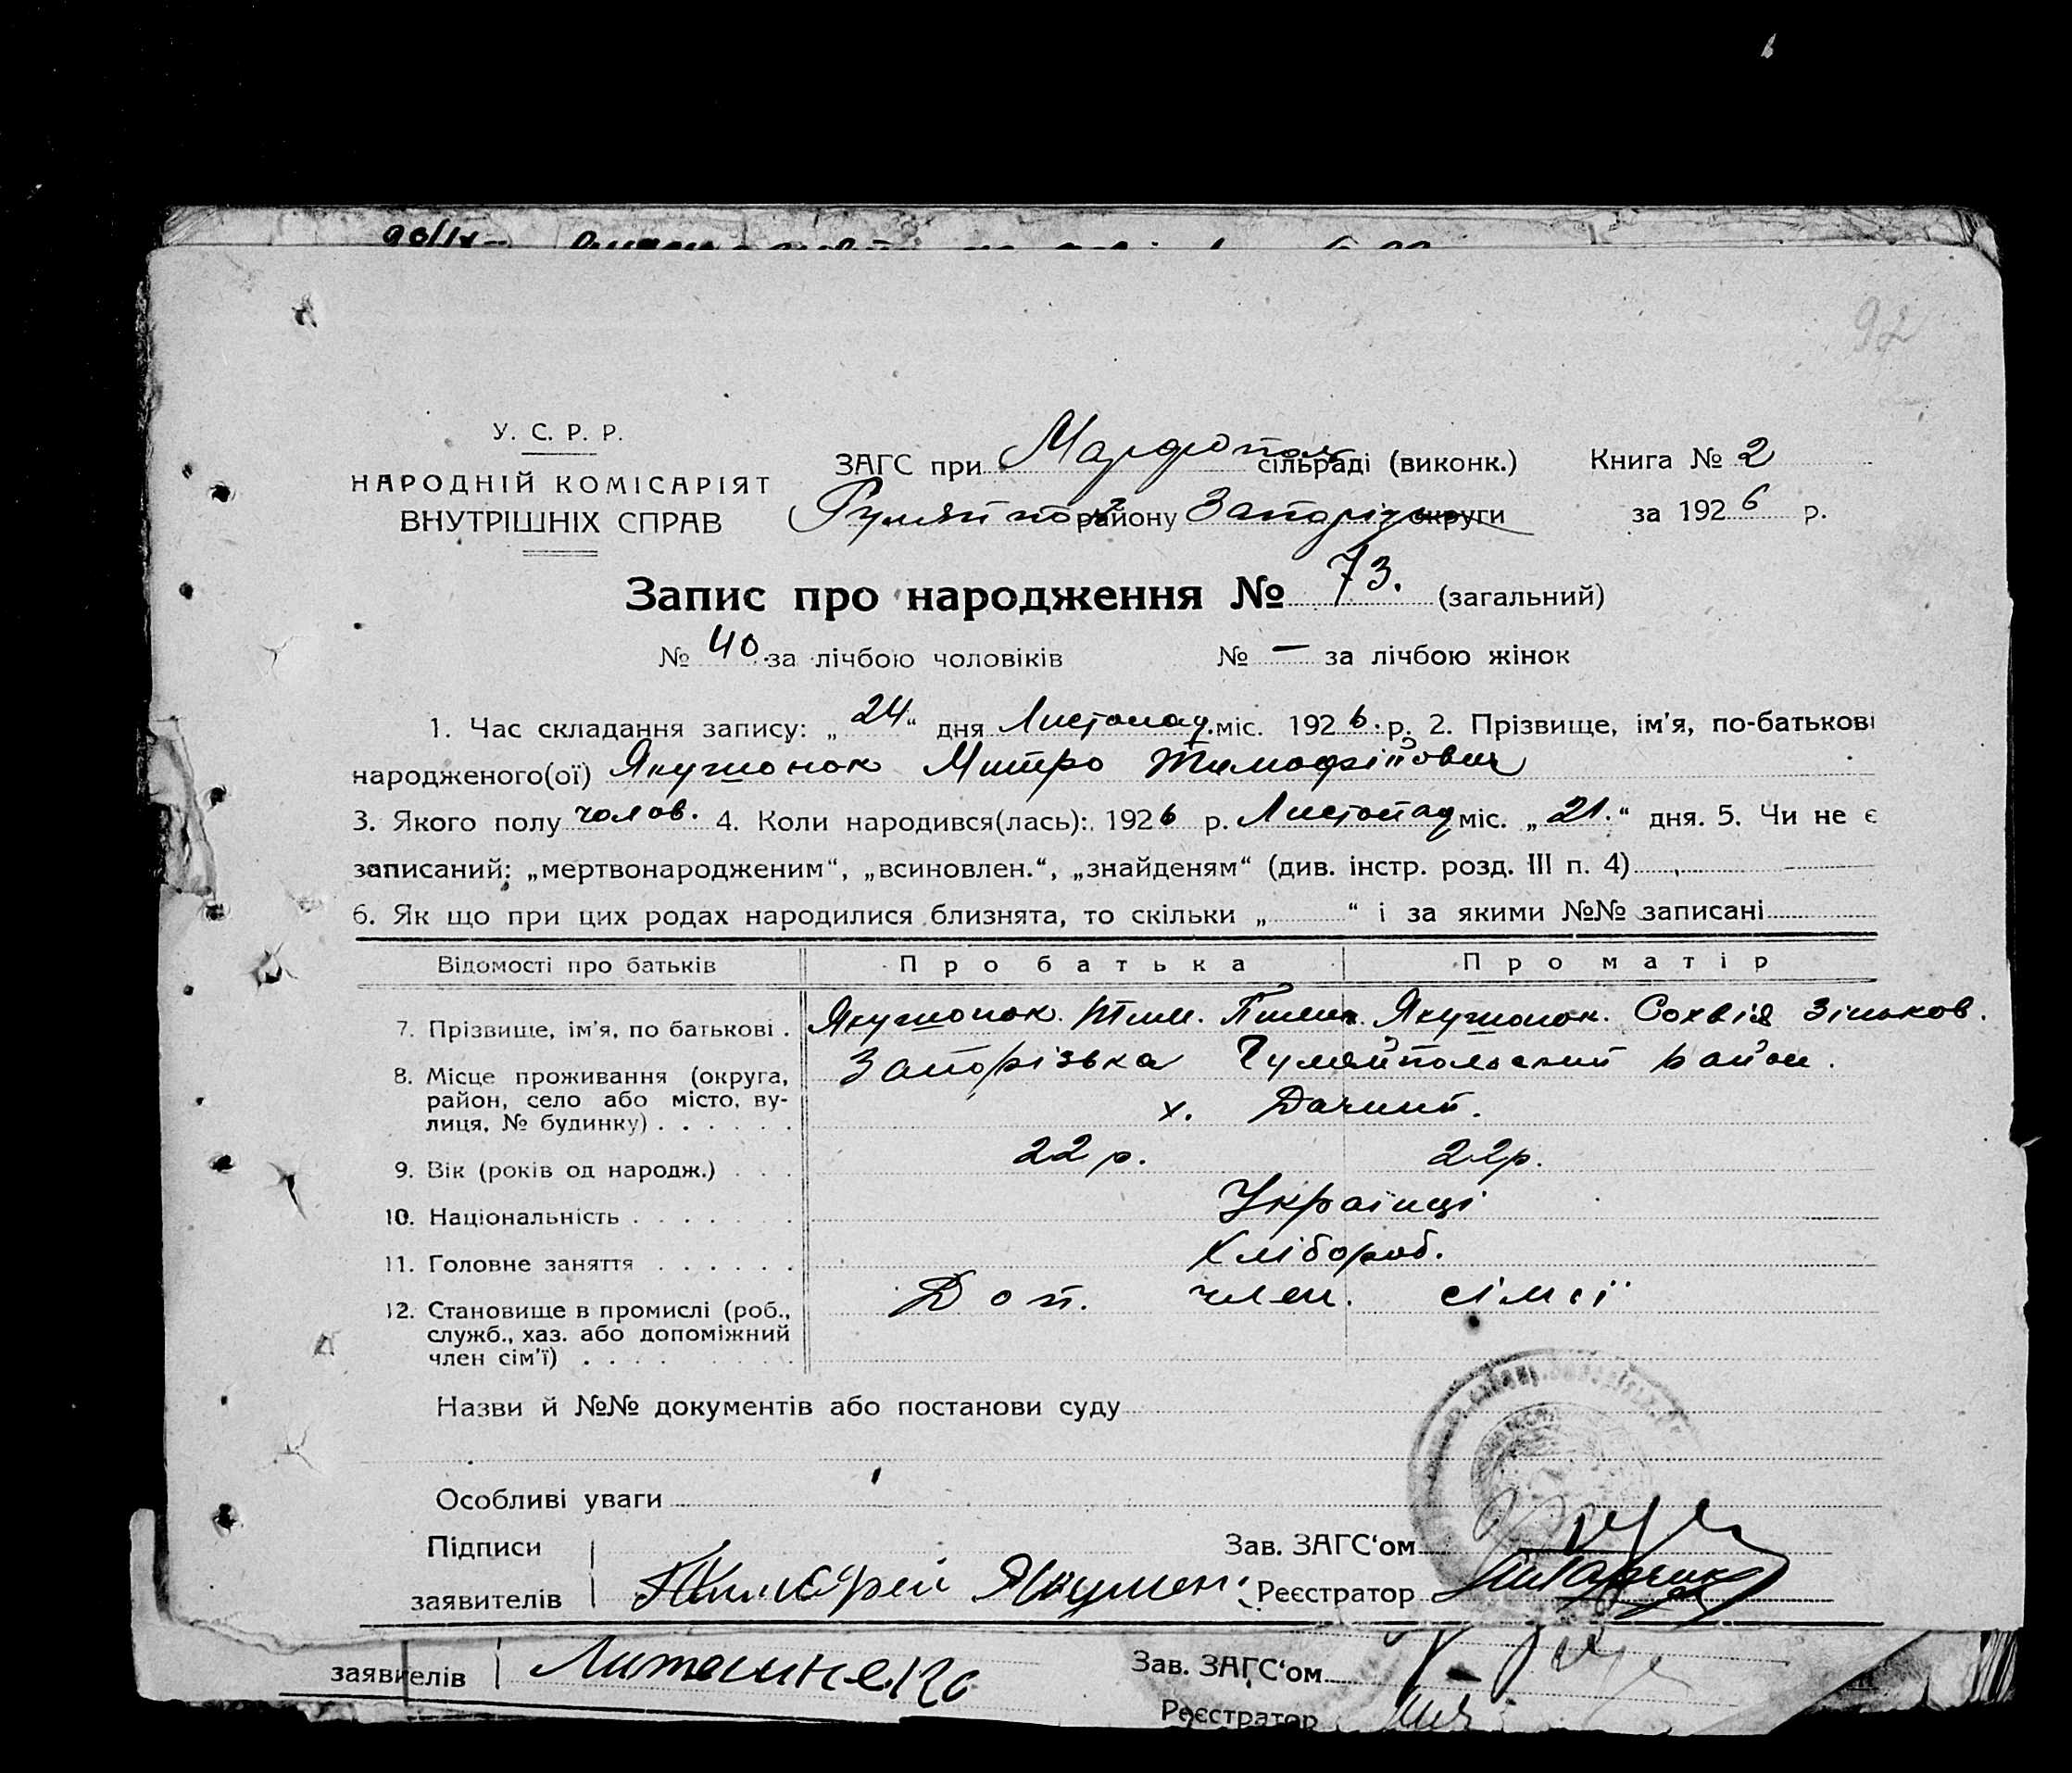 92
У. С. Р. Р.
НАРОДНІЙ КОМІСАРІЯТ
ВНУТРІШНІХ СПРАВ
ЗАГС при Марфопол сільраді (виконк.) Книга № 2
Гуляйпол району Запорізьк округи за 1926 р.
Запис про народження № 73. (загальний)
№ 40 за лічбою чоловіків № — за лічбою жінок
1. Час складання запису: „24“ дня Листопад. міс. 1926 р. 2. Прізвище, ім'я, по-батькові
народженого(ої) Якушонок Митро Тимофійович
3. Якого полу чолов. 4. Коли народився(лась): 1926 р. Листопад міс. „21.“ дня. 5. Чи не є
записаний: „мертвонародженим“, „всиновлен.“, „знайденям“ (див. інстр. розд. III п. 4)
6. Як що при цих родах народилися близнята, то скільки „ “ і за якими №№ записані
Відомості про батьків Про батька Про матір
7. Прізвище, ім'я, по батькові . Якушонок. Тим. Якушонок. Сохвія Зіньков.
8. Місце проживання (округа, район, село або місто, вулиця, № будинку) Запорізька Гуляйпольський район.
х.
9. Вік (років од народж.) 22 р. 22 р.
10. Національність Українці
11. Головне заняття Хлібороб.
12. Становище в промислі (роб., служб., хаз. або допоміжний член сім'ї) Доп. член. сімії
Назви й №№ документів або постанови суду
Особливі уваги
Підписи Зав. ЗАГС‘ом
заявителів Тимофей Якушен Реєстратор
заявителів Зав. ЗАГС‘ом
Реєстратор